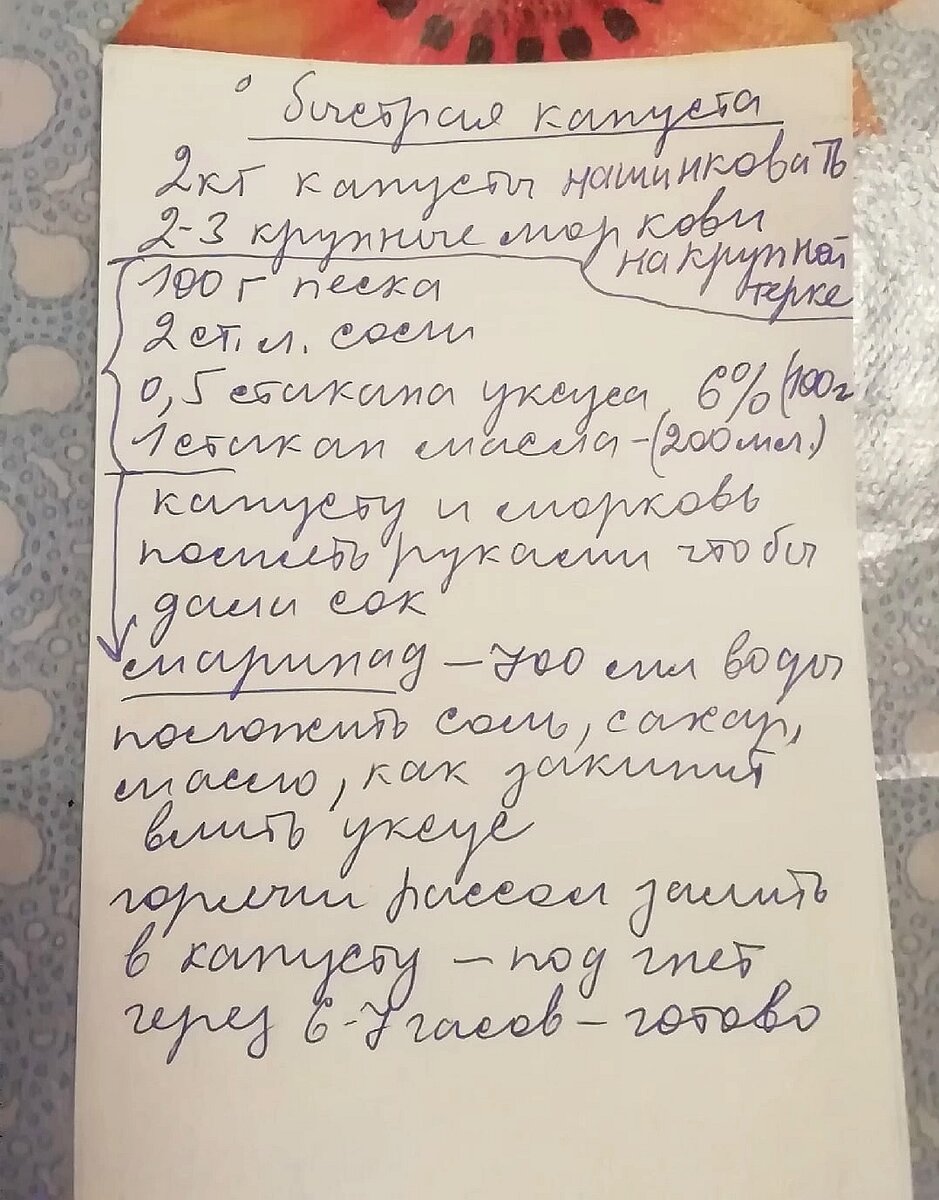 быстрая капуста
2кг капусты нашинковать
2-3 крупные моркови
на крупной
терке
100г песка
2 ст. л. соли
0,5 стакана уксуса 6% (100г
1 стакан масла - (200 мл.)
капусту и морковь
помять руками чтобы
дали сок
маринад - 700 мл воды
положить соль, сахар,
масло, как закипит
влить уксус
горячим рассол залить
в капусту - под гнет
через 6-7 часов - готово